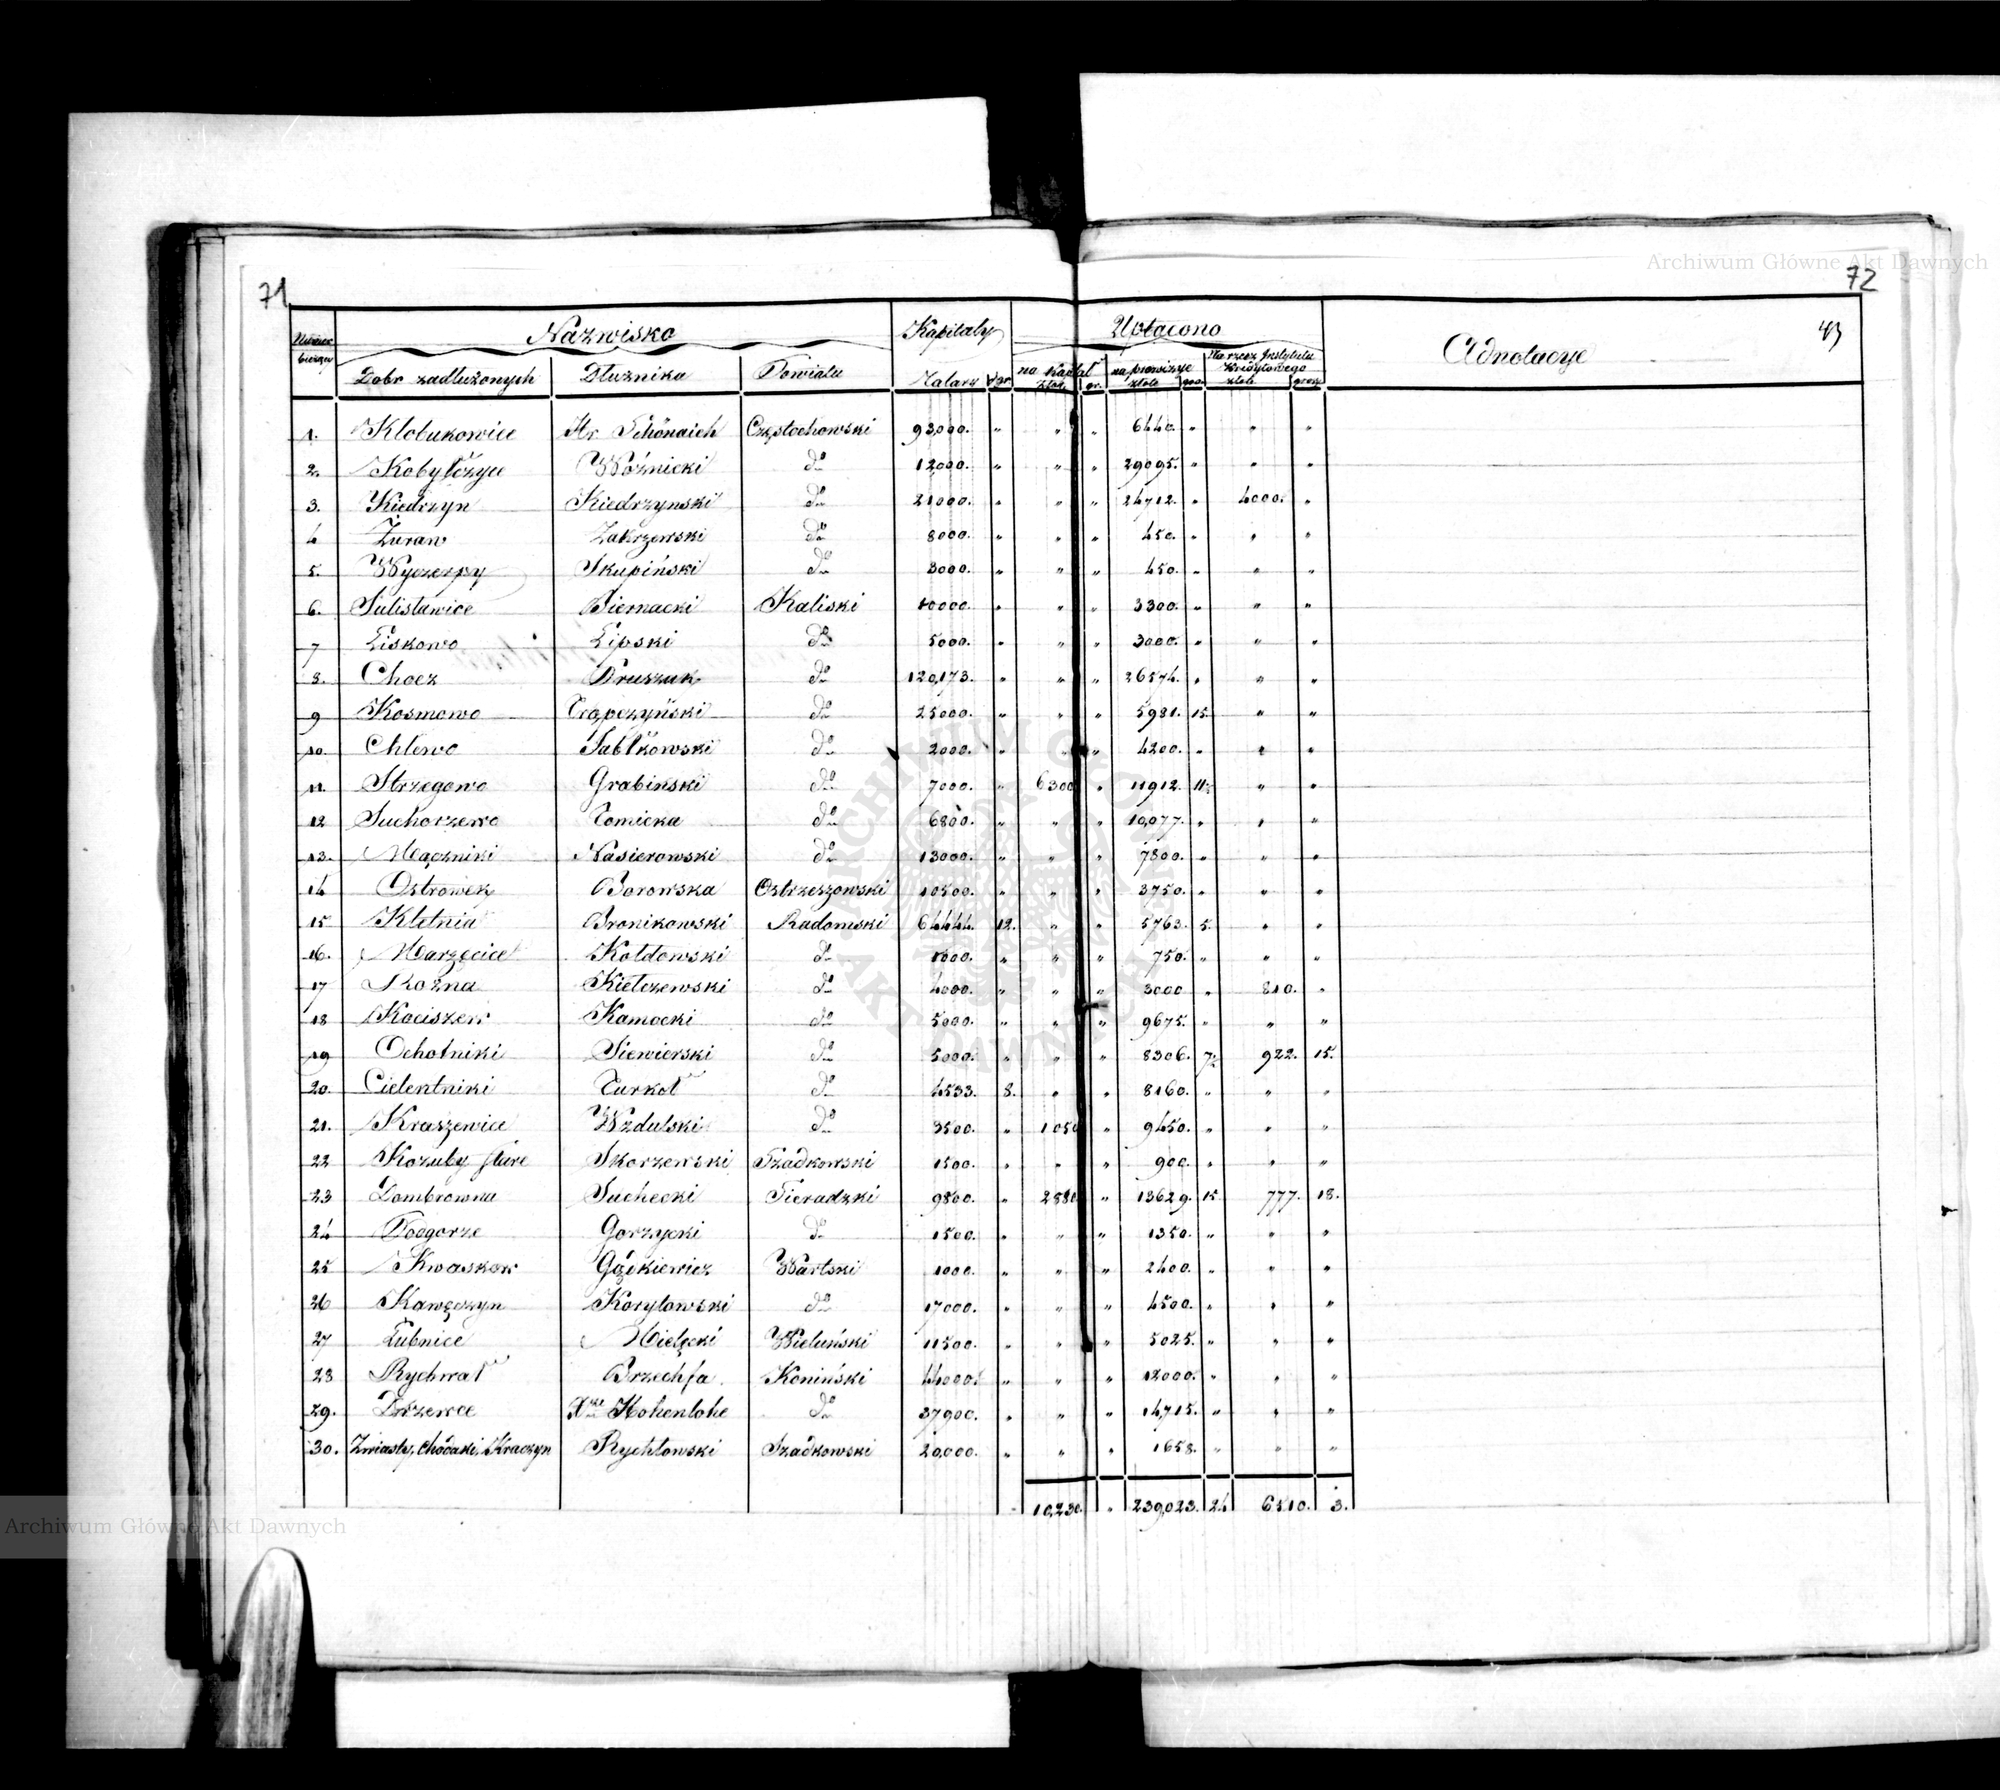 Archiwum Główne Akt Dawnych
71 72
Numer bieżący Nazwisko Kapitały Upłacono Adnotacye 43
Dobr zadłużonych Dłużnika Powiatu Talary dgr. na kapitał złote gr. na prowizye złote gro. Na rzecz Instytutu Kredytowego złote grosze
1. Kłobukowice Hr. Schönaich Częstochowski 93,000. " " " 6440. " " "
2. Kobyłczyce Woźnicki do 12,000. " " " 29095. " " "
3. Kiedrzyn Kiedrzynski do 21000. " " " 24712. " 4000. "
4 Żuraw Zakrzewski do 8000. " " " 450. " " "
5. Wyczerpy Skupiński do 3000. " " " 450. " " "
6. Sulisławice Biernacki Kaliski 10000. " " " 3300. " " "
7 Liskowo Lipski do 5000. " " " 3000. " " "
8. Chocz Pruszak do 120,173. " " " 26574. " " "
9 Kosmowo Trąpczyński do 25000. " " " 5981. 15. " "
10. Chlewo Jabłkowski do 2000. " " " 4200. " " "
11. Strzegowo Grabiński do 7000. " 6300 " 11912. 11½ " "
12 Suchorzewo Tomicka do 6800. " " " 10,077. " " "
13. Mączniki Nasierowski do 13000. " " " 7800. " " "
14 Ostrówek Borowska Ostrzeszowski 10500. " " " 3750. " " "
15. Kletnia Bronikowski Radomski 6444. 12. " " 5763. 5. " "
16. Marzęcice Kołdowski do 1000. " " " 750. " " "
17 Rożna Kiełczewski do 4000. " " " 3000 " 810. "
18 Kociszew Kamocki do 5000. " " " 9675. " " "
19 Ochotniki Siewierski do 5000. " " " 8306. 7½ 922. 15.
20. Cielentniki Turkoł do 4533. 8. " " 8160. " " "
21. Kraszewice Wzdulski do 3500. " 1050 " 9450. " " "
22 Kozuby stare Skorzewski Szadkowski 1500. " " " 900. " " "
23 Dombrowna Suchecki Sieradzki 9800. " 2880 " 13629. 15 777. 18.
24 Podgorze Gorzycki do 1500. " " " 1350. " " "
25 Kwaskow Gąłkiewicz Wartski 1000. " " " 2400. " " "
26 Kawęczyn Korytowski do 17000. " " " 4500. " " "
27 Łubnice Mielęcki Wieluński 11500. " " " 5025. " " "
28 Rychwał Brzechfa Koniński 44000. " " " 12000. " " "
29. Drzewce Xże Hohenlohe do 37900. " " " 14,715. " " "
30. Zmiasły, Chodaki, Kraczyn Rychłowski Szadkowski 20,000. " " " 1658. " " "
10,230. " 239,023. 24 6510. 3.
Archiwum Główne Akt Dawnych
ARCHIWUM GŁÓWNE AKT DAWNYCH